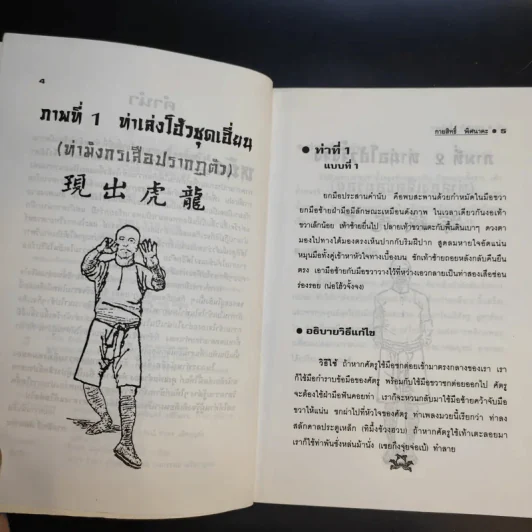 ๔
ภาพที่ 1 ท่าเล่งโฮ้วชุดเฮี่ยน
(ท่ามังกรเสือปรากฏตัว)
現出虎龍
กายสิทธิ์ พิศนาคะ ● ๕
● ท่าที่ 1
แบบที่ 1
ยกมือประสานคำนับ คือพบสะพานด้วยกำหมัดในมือขวา
ยกมือซ้ายฝ่ามือมีลักษณะเหมือนดังภาพ ในเวลาเดียวกันงอเท้า
ขวาเล็กน้อย เท้าซ้ายยื่นไป ปลายเท้าขวาแตะกับพื้นดินเบาๆ ดวงตา
มองไปทางใต้มองตรงเห็นปากกับริมฝีปาก สูดลมหายใจอัดแน่น
หมุนมือทั้งคู่เข้าหาหัวใจทางเบื้องบน ชักเท้าซ้ายถอยหลังกลับคืนยืน
ตรง เอามือซ้ายกับมือขวาวางไว้ที่หว่างเอวกลายเป็นท่าสองเสือซ่อน
ร่องรอย (น่อโฮ้วจั้งจง)
● อธิบายวิธีแก้ไข
วิธีใช้ ถ้าหากศัตรูใช้มือชกต่อยเข้ามาตรงกลางของเรา เรา
ก็ใช้มือกำราบข้อมือของศัตรู พร้อมกับใช้มือขวาชกต่อยออกไป ศัตรู
จะต้องใช้ฝ่ามือฟันคอยท่า เราก็จะหวนกลับมาใช้มือซ้ายคว้าจับมือ
ขวาให้แน่น ชกผ่าไปที่หัวใจของศัตรู ท่าเพลงมวยนี้เรียกว่า ท่าลง
สลักดาลประตูเหล็ก (ทิมึ้งช้วงฮวบ) ถ้าหากศัตรูใช้เท้าเตะลอยมา
เราก็ใช้ท่าพันชั่งหล่นม้านั่ง (เชยกึงจุ่ยจ่อเบ้) ทำลาย